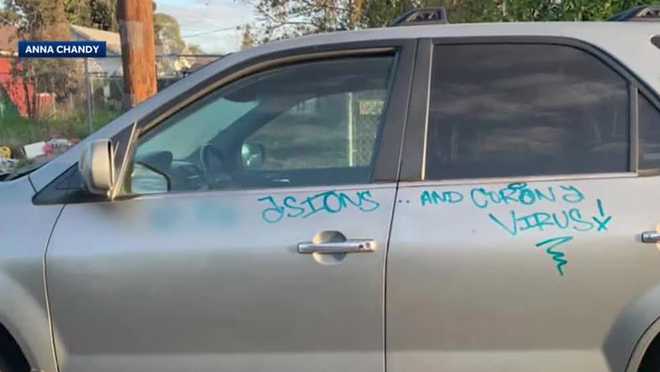 ANNA CHANDY
ASIONS .. AND CORONA
VIRUS!